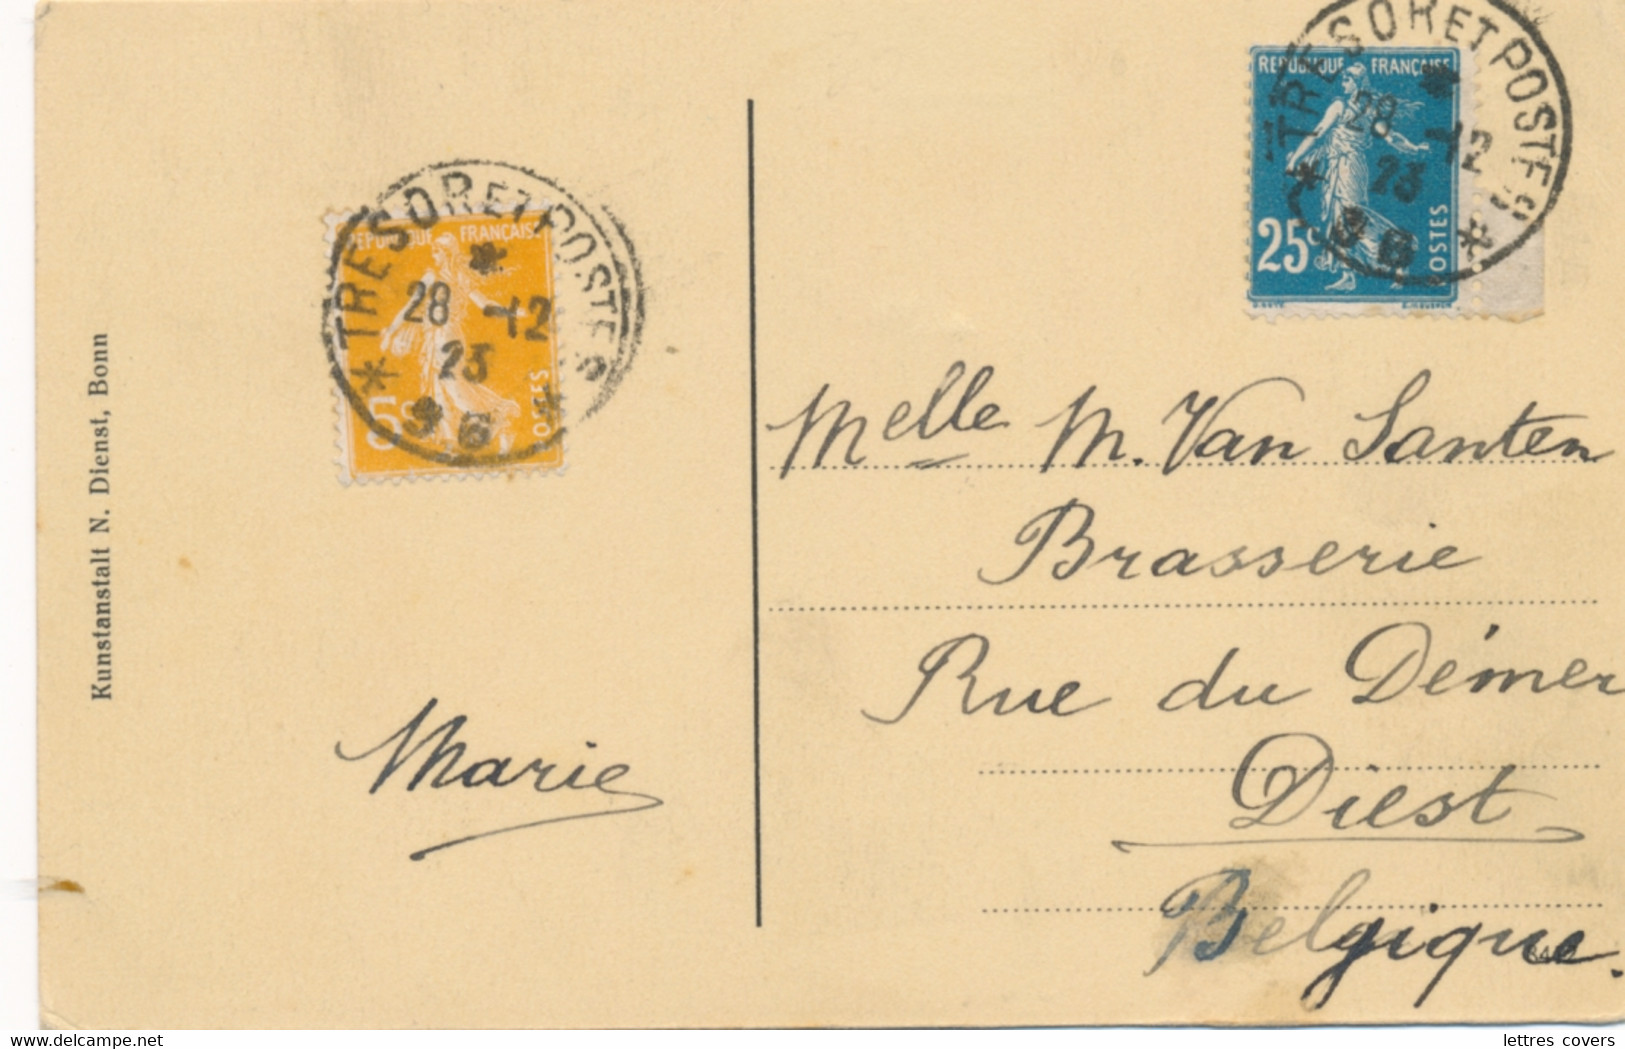 Kunstanstalt N. Dienst, Bonn
REPUBLIQUE FRANÇAISE
5c
POSTES
* TRESOR ET POSTES *
28 -12
23
96
REPUBLIQUE FRANÇAISE
25c
POSTES
* TRESOR ET POSTES *
28 -12
23
96
Melle M. Van Santen
Brasserie
Rue du Démer
Diest
Belgique.
Marie
lettres covers